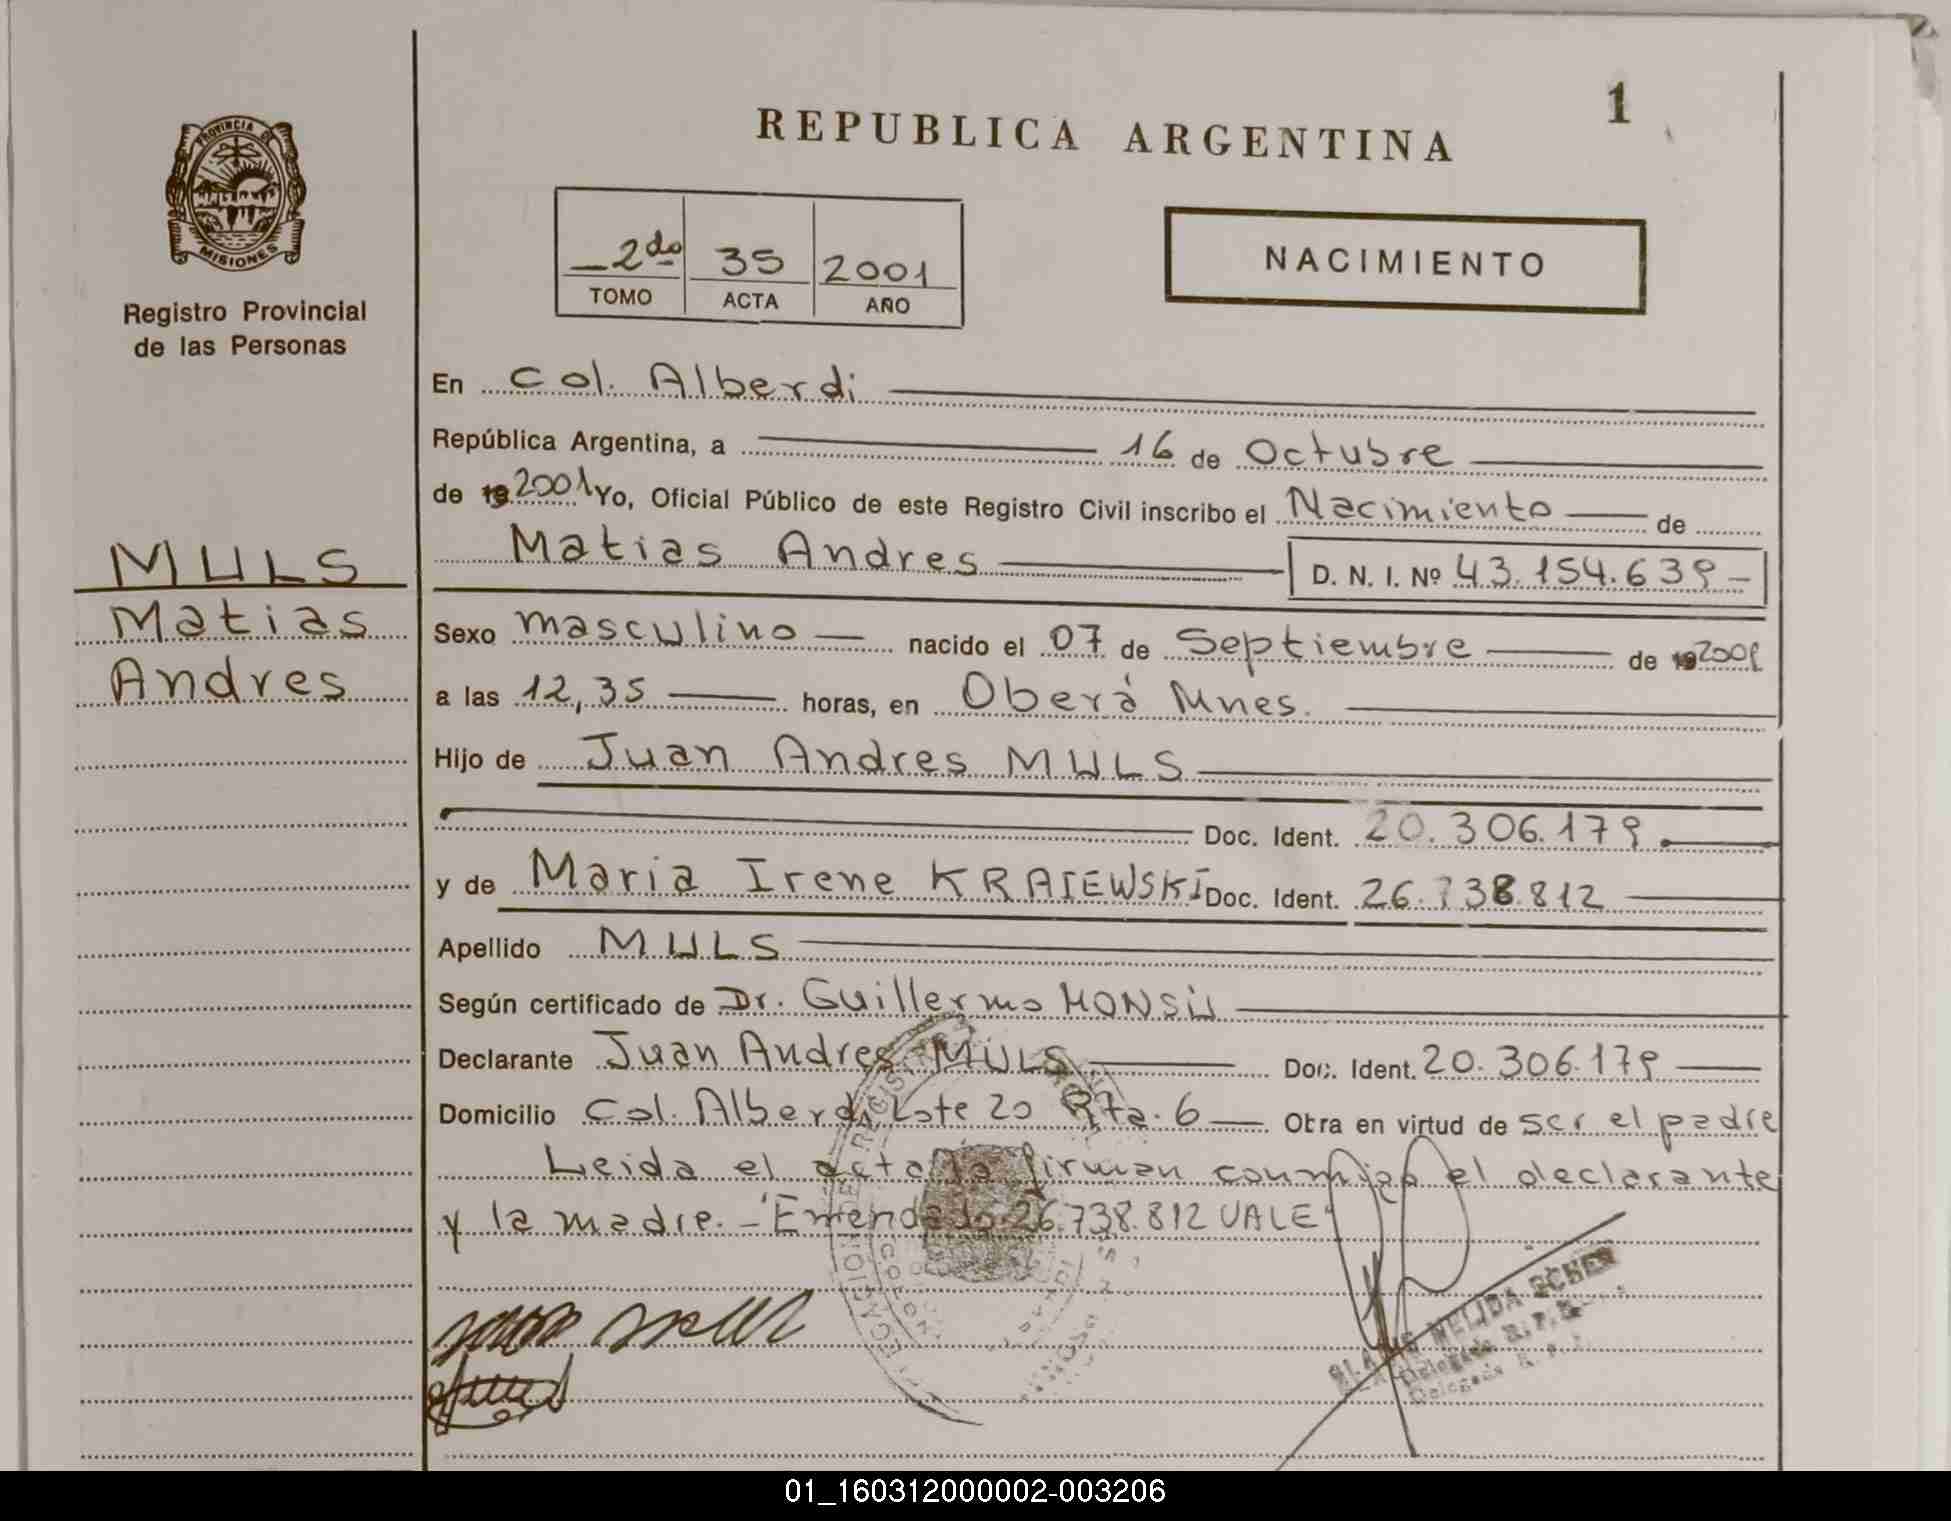 1
REPUBLICA ARGENTINA
PROVINCIA DE
MISIONES
Registro Provincial
de las Personas
2do 35 2001
TOMO ACTA AÑO
NACIMIENTO
En Col. Alberdi
República Argentina, a 16 de Octubre
de 19 2001 Yo, Oficial Público de este Registro Civil inscribo el Nacimiento de
Matias Andres D. N. I. Nº 43.154.639
MULS
Matias
Andres
Sexo masculino nacido el 07 de Septiembre de 19 2001
a las 12,35 horas, en Oberá Mnes.
Hijo de Juan Andres MULS
Doc. Ident. 20.306.179
y de Maria Irene KRAIEWSKI Doc. Ident. 26.738.812
Apellido MULS
Según certificado de Dr. Guillermo
Declarante Juan Andres MULS Doc. Ident. 20.306.179
Domicilio Col. Alberdi Lote 20 Rta. 6 Otra en virtud de ser el padre
Leida el acta la firman conmigo el declarante
y la madre. - "Emendado 26.738.812 VALE"
NELIDA
Delegada R. P. P.
01_160312000002-003206